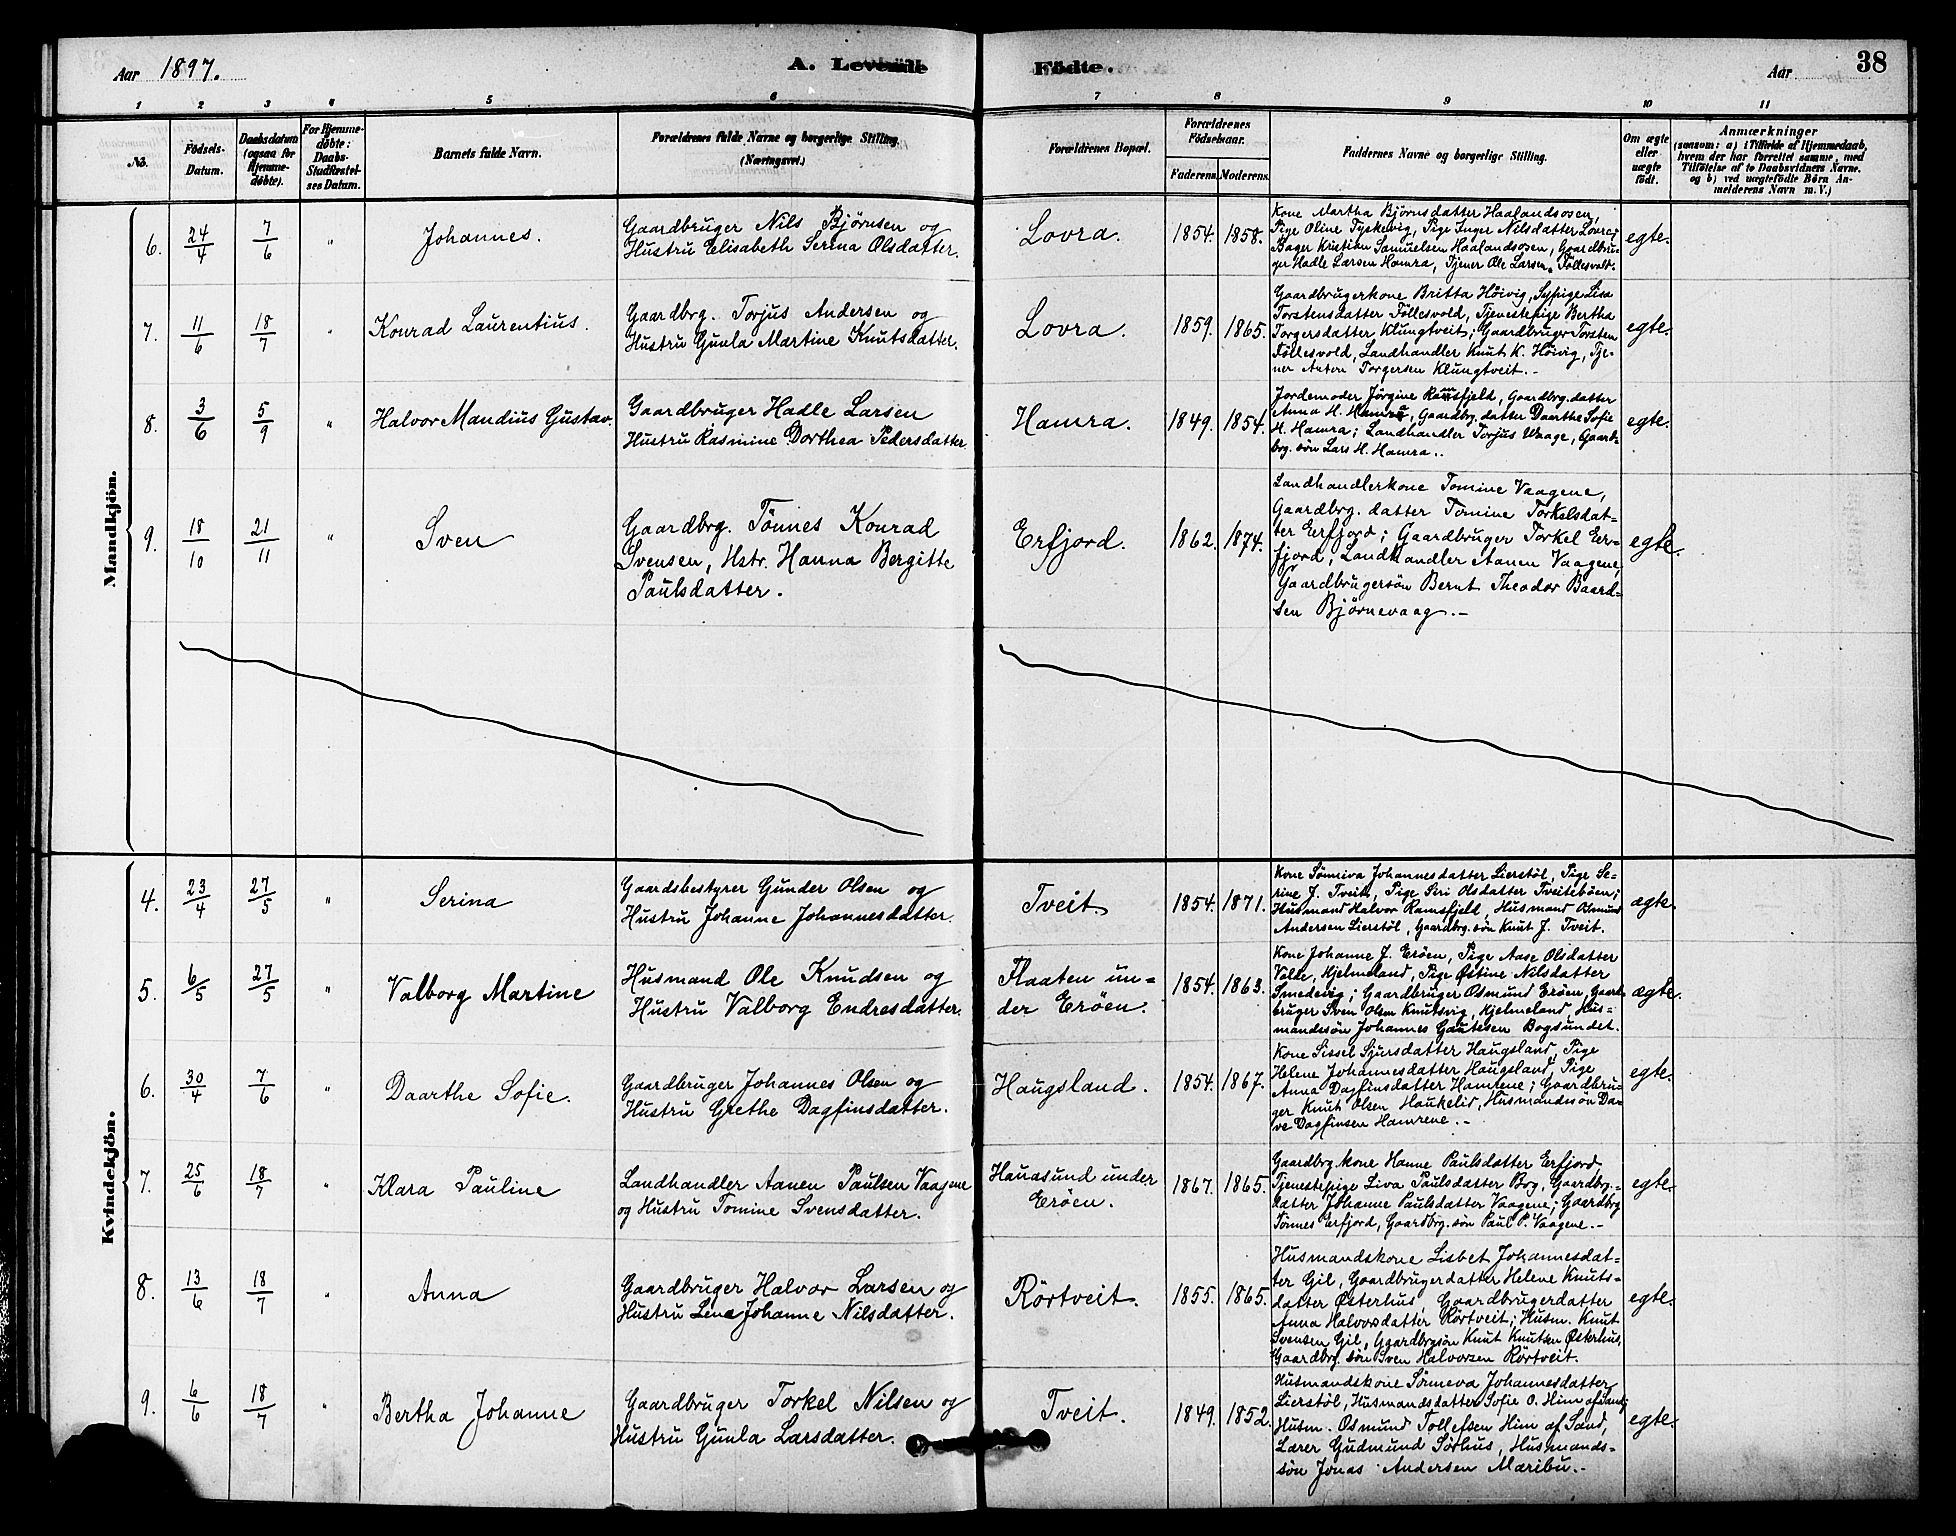 Aar 1897.
A. Levende
Födte.
Aar
38
1 2 3 4 5 6 7 8 9 10 11
No.
Födsels-
Datum.
Daabsdatum
(ogsaa for
Hjemme-
döbte).
For Hjemme-
döbte:
Daabs-
Stadfæstel-
ses Datum.
Barnets fulde Navn.
Forældrenes fulde Navne og borgerlige Stilling.
(Næringsvei.)
Forældrenes Bopæl.
Forældrenes
Födselsaar.
Faderens.
Moderens.
Faddernes Navne og borgerlige Stilling.
Om ægte
eller
uægte
födt.
Anmærkninger
(saasom: a) i Tilfælde af Hjemmedaab,
hvem der har forrettet samme, med
Tilföielse af to Daabsvidners Navne.
og b) ved uægtefödte Börn An-
melderens Navn m. V.)
Mandkjön.
6. 24/4 7/6 "
Johannes.
Gaardbruger Nils Bjørnsen og
Hustru Elisabeth Serina Olsdatter.
Lovra.
1854. 1858.
Kone Martha Bjørnsdatter Haalandsosen,
Pige Oline Tyskevig, Pige Inger Nilsdatter Lovra;
Bager Kristian Samuelsen Haalandsosen, Gaardbru-
ger Hadle Larsen Hamra, Tjener Ole Larsen Föllesvold.
egte.
7. 11/6 18/7 "
Konrad Laurentius.
Gaardbrg. Torjus Andersen og
Hustru Gunla Martine Knutsdatter.
Lovra.
1859. 1865.
Gaardbrugerkone Britta Höivig, Sypige Lisa
Torstensdatter Föllesvold, Tjenestepige Bertha
Torgersdatter Klungtveit; Gaardbruger Torsten
Föllesvold, Landhandler Knut K. Höivig, Tje-
ner Anton Torgersen Klungtveit.-
egte.
8. 3/6 5/9 "
Halvor Mandius Gustav.
Gaardbruger Hadle Larsen
Hustru Rasmine Dorthea Pedersdatter
Hamra.
1849. 1854.
Jordemoder Jörgine Ramsfjeld, Gaardbrg. datter
Anna H. Hamra, Gaardbrg. datter Daarthe Sofie
H. Hamra; Landhandler Torjus Waage, Gaard-
brg. sön Lars H. Hamra..
egte.
9. 18/10 21/11 "
Sven
Gaardbrg. Tönnes Konrad
Svensen, Hstr. Hanna Bergitte
Paulsdatter.
Erfjord.
1862. 1874.
Landhandlerkone Tomine Vaagene,
Gaardbrg. datter Tomine Torkelsdat-
ter Erfjord; Gaardbruger Torkel Er-
fjord, Landhandler Aanen Vaagene,
Gaardbrugersön Bernt Theodor Baard-
sen Bjørnevaag.-
egte.
Kvindekjön.
4. 23/4 27/5 "
Serina
Gaardsbestyrer Gunder Olsen og
Hustru Johanne Johannesdatter.
Tveit.
1854. 1871.
Kone Sönniva Johannesdatter Lierstöl, Pige Se-
rine J. Tveit, Pige Siri Olsdatter Tveitebøen;
Husmand Halvor Ramsfjeld, Husmand Osmund
Andersen Lierstöl, Gaardbrg. sön Knut J. Tveit.
ægte.
5. 6/5 27/5 "
Valborg Martine
Husmand Ole Knudsen og
Hustru Valborg Endresdatter.
Flaaten un-
der Eröen.
1854. 1863.
Kone Johanne J. Eröen, Pige Aase Olsdatter
Valle, Hjelmeland, Pige Østine Nilsdatter
Smedevig; Gaardbruger Osmund Eröen, Gaard-
bruger Sven Olsen Knutsvig, Hjelmeland, Hus-
mandssön Johannes Gautesen Bogsundet.
ægte.
6. 30/4 7/6 "
Daarthe Sofie.
Gaardbruger Johannes Olsen og
Hustru Grethe Dagfinsdatter.
Haugsland.
1854. 1867.
Kone Sissel Sjursdatter Haugsland, Pige
Helene Johannesdatter Haugsland, Pige
Anna Dagfinsdatter Hamrene; Gaardbru-
ger Knut Olsen Haukelid, Husmandssön Da-
ve Dagfinsen Hamrene.-
egte.
7. 25/6 18/7 "
Klara Pauline
Landhandler Aanen Paulsen Vaagene
og Hustru Tomine Svensdatter.
Hauasund under
Eröen.
1867. 1865.
Gaardbrg. kone Hanne Paulsdatter Erfjord,
Tjenestepige Liva Paulsdatter Bog, Gaardbrg.-
datter Johanne Paulsdatter Vaagene; Gaardbrg
Tönnes Erfjord, Gaardbrg. sön Paul P. Vaagene.-
egte.
8. 13/6 18/7 "
Anna
Gaardbruger Halvor Larsen og
Hustru Lena Johanne Nilsdatter.
Rörtveit.
1855. 1865.
Husmandskone Lisbet Johannesdat-
ter Gil, Gaardbrugerdatter Helene Knuts-
datter Østerhus, Gaardbrugerdatter
Anna Halvorsdatter Rörtveit; Husm. Knut
Svensen Gil, Gaardbrgsön Knut Knutsen Østerhus,
Gaardbrg. sön Sven Halvorsen Rörtveit.
egte.
9. 6/6 18/7 "
Bertha Johanne
Gaardbruger Torkel Nilsen og
Hustru Gunla Larsdatter.
Tveit.
1849. 1852.
Husmandskone Sönneva Johannesdatter
Lierstöl, Husmandsdatter Sofie O. Him af Sand;
Husm. Osmund Tollefsen Him af Sand,
Lærer Gudmund Sörhus, Husmands-
sön Jonas Andersen Maribu.-
egte.